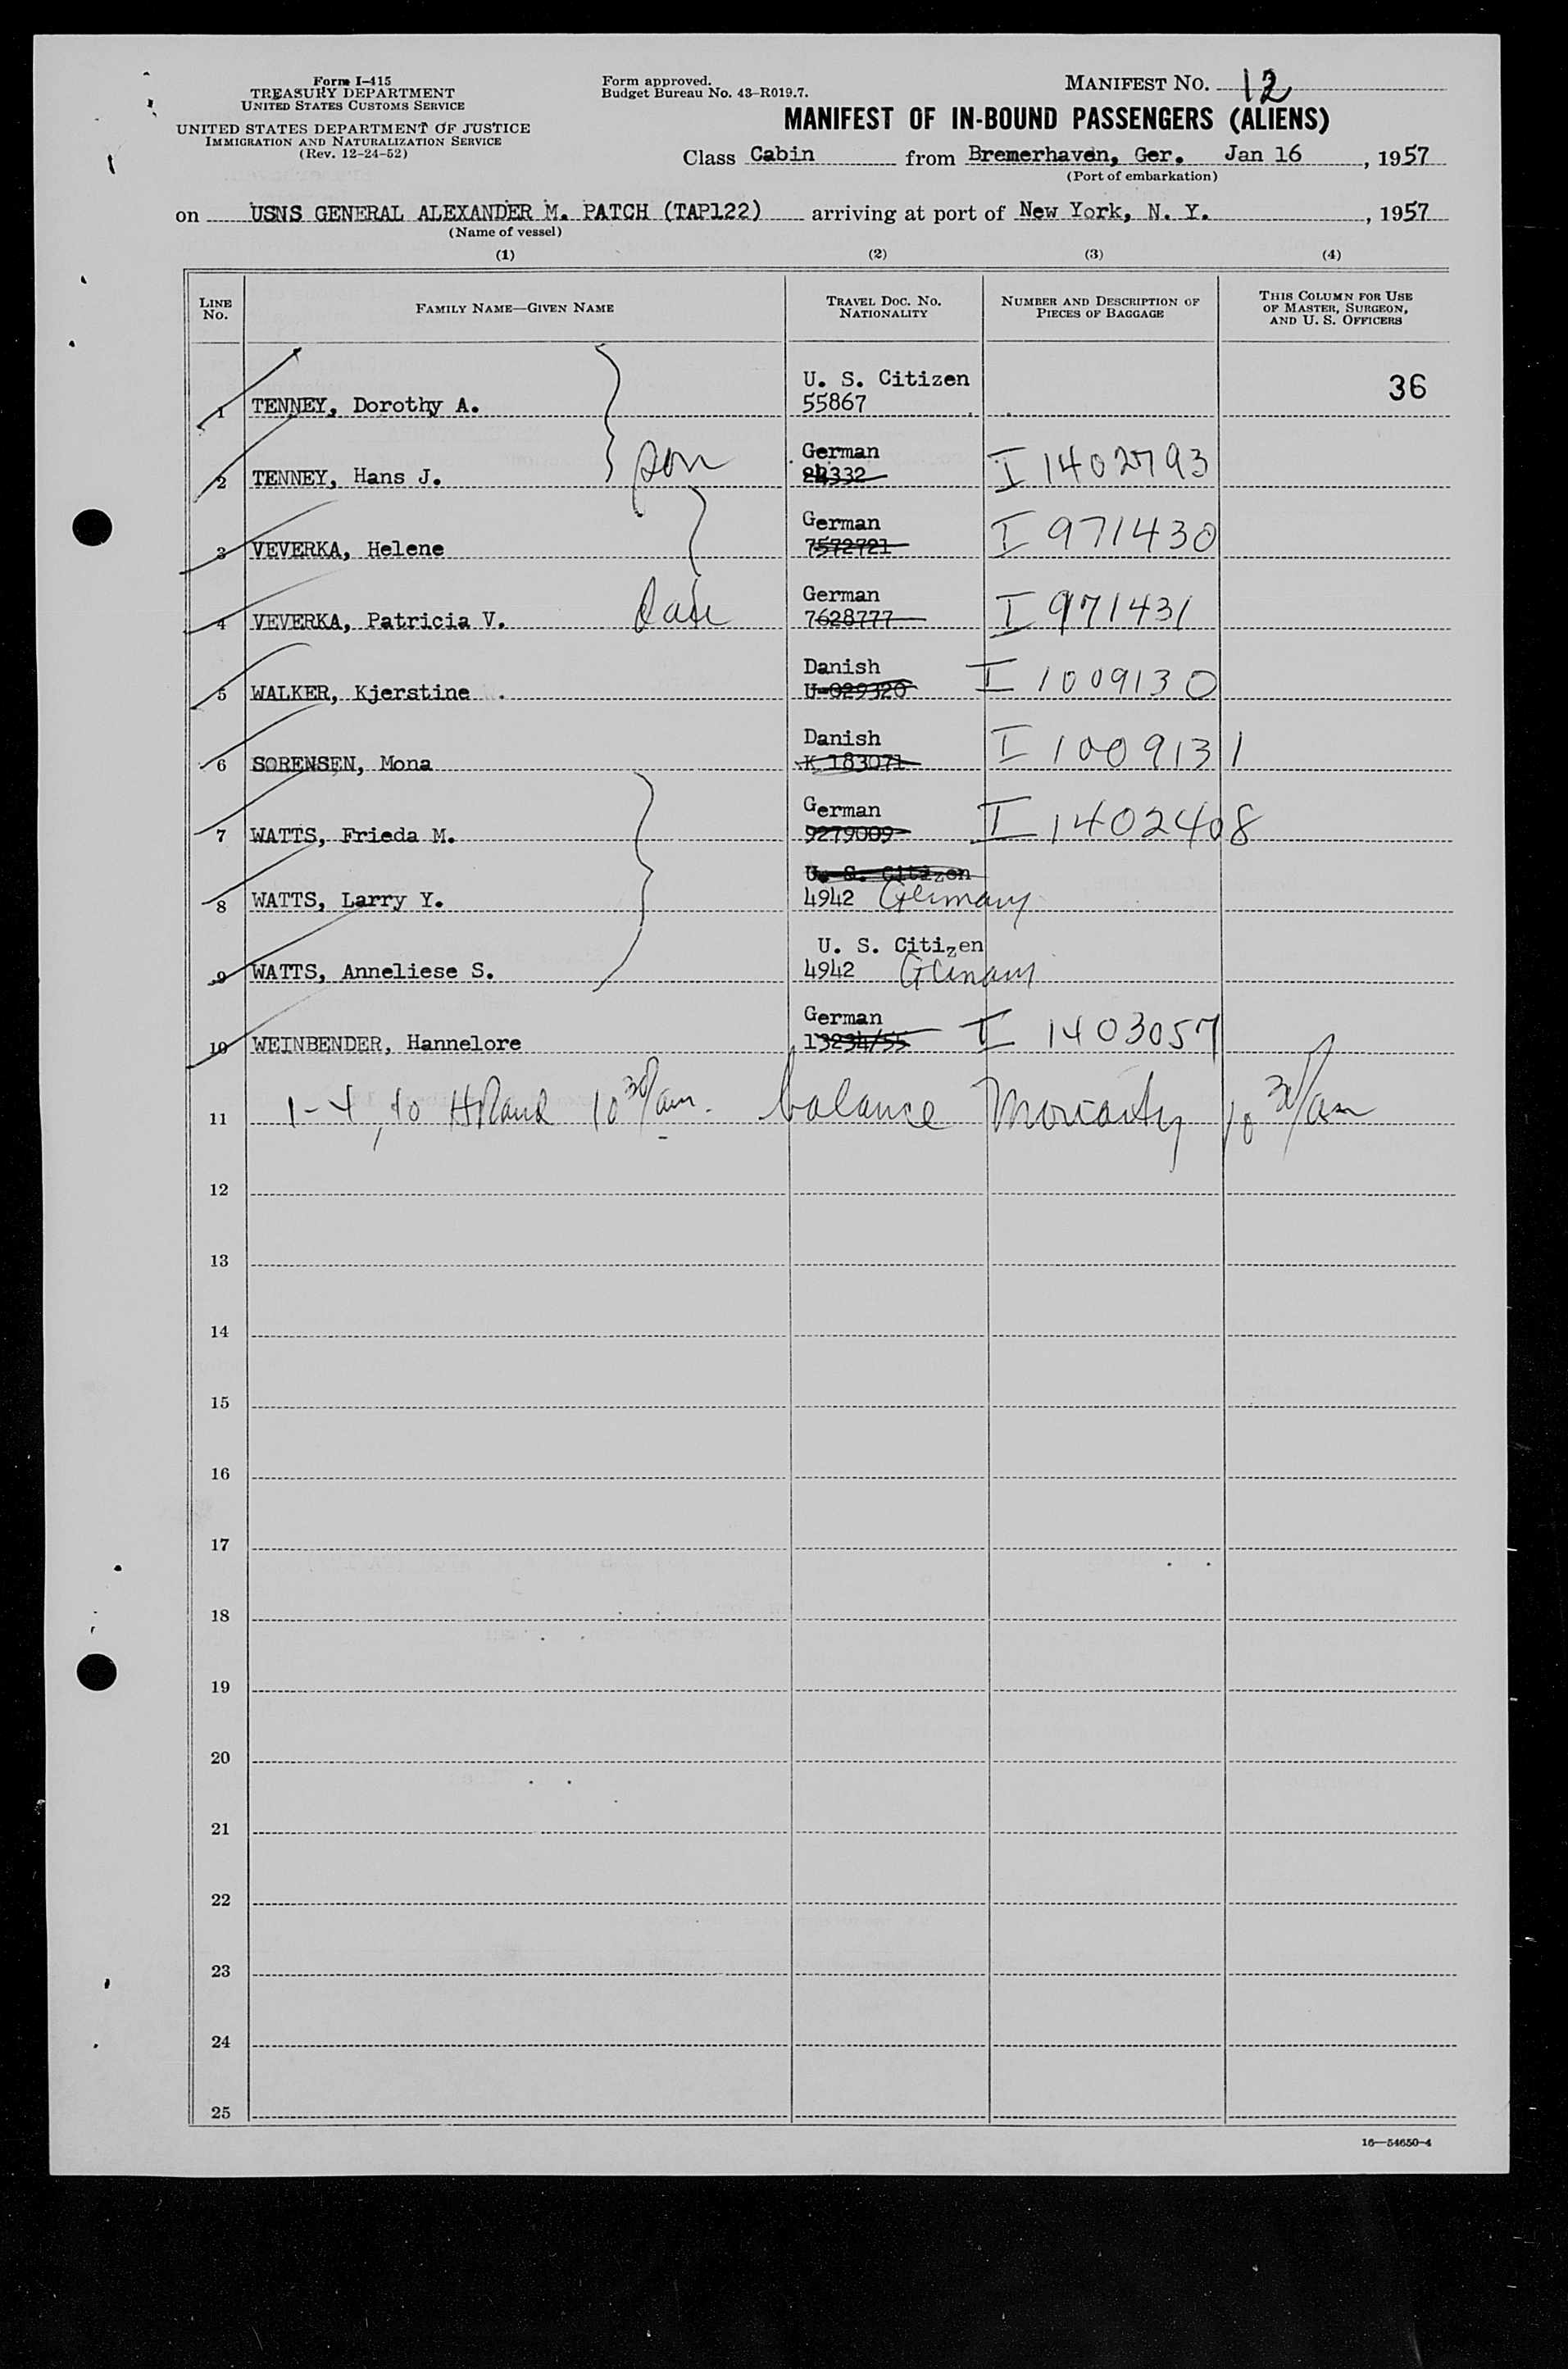 Form I-415
TREASURY DEPARTMENT
UNITED STATES CUSTOMS SERVICE
UNITED STATES DEPARTMENT OF JUSTICE
IMMIGRATION AND NATURALIZATION SERVICE
(Rev. 12-24-52)
Form approved.
Budget Bureau No. 43-R019.7.
MANIFEST NO. 12
MANIFEST OF IN-BOUND PASSENGERS (ALIENS)
Class Cabin from Bremerhaven, Ger. Jan 16, 1957
(Port of embarkation)
on USNS GENERAL ALEXANDER M. PATCH (TAP122) arriving at port of New York, N. Y., 1957
(Name of vessel)
(1) (2) (3) (4)
LINE No. FAMILY NAME—GIVEN NAME TRAVEL DOC. NO. NATIONALITY NUMBER AND DESCRIPTION OF PIECES OF BAGGAGE THIS COLUMN FOR USE OF MASTER, SURGEON, AND U. S. OFFICERS
U. S. Citizen 36
1 TENNEY, Dorothy A. 55867
German
2 TENNEY, Hans J. son 332 I 1402793
German
3 VEVERKA, Helene 7572721 I 971430
German
4 VEVERKA, Patricia V. 7628777 I 971431
Danish
5 WALKER, Kjerstine U-029320 I 1009130
Danish
6 SORENSEN, Mona K 183071 I 1009131
German
7 WATTS, Frieda M. 9279009 I 1402408
U. S. Citizen
8 WATTS, Larry Y. 4942 Germany
U. S. Citizen
9 WATTS, Anneliese S. 4942 Germany
German
10 WEINBENDER, Hannelore 13234/55 I 1403057
11 1-4, 10 10 30/am. balance Moriarty 10 30/am
12
13
14
15
16
17
18
19
20
21
22
23
24
25
16—54650-4